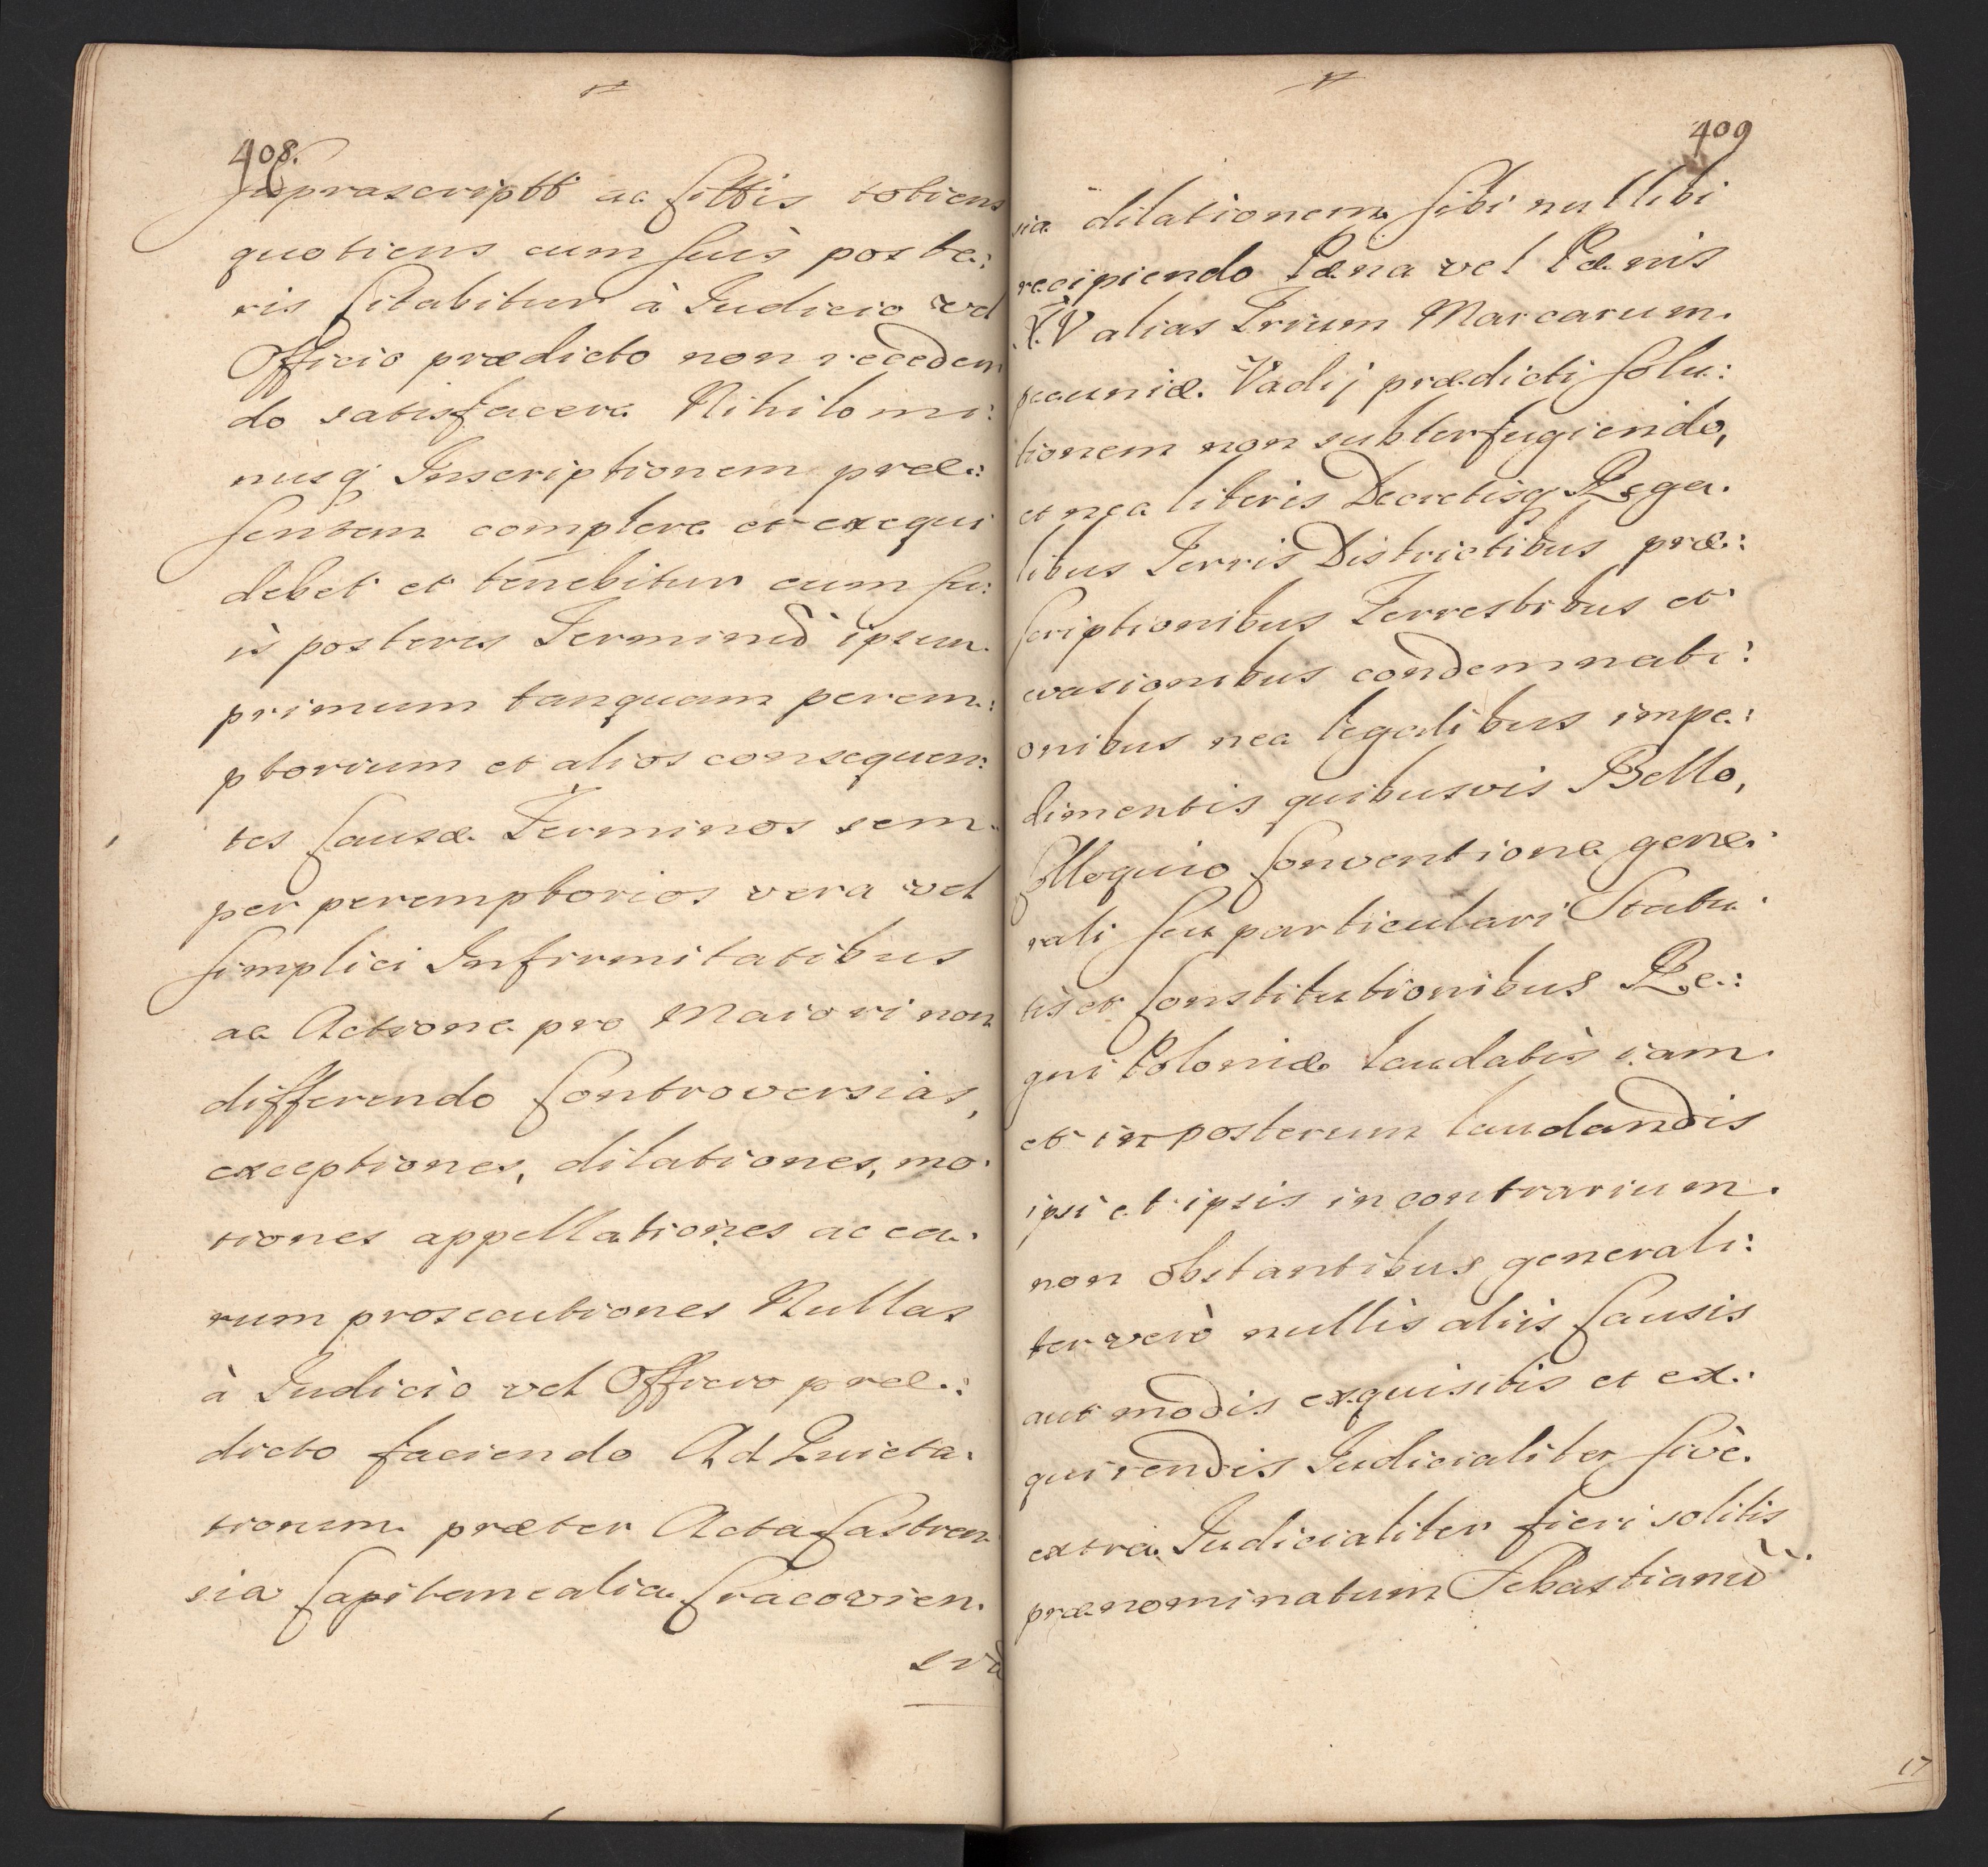 408.
suprascriptt ac sittis totiens
quotiens cum suis poste:
ris Citabitur à Judicio vel
Officio prædicto non receden
do satisfacere Nihilomi:
nusq Inscriptionem præ:
sentem complere et exequi
debet et tenebitur cum su:
is posteris Terminũ ipsum
primum tanquam perem:
ptorium et alios consequen:
tes Causæ Terminos sem:
per peremptorios vera vel
simplici Infirmitatibus
ac Actione pro Maiori non
differendo Controversias,
exceptiones, dilationes, mo:
tiones appellationes ac ea:
rum prosecutiones Nullas
à Judicio vel Officio præ:
dicto faciendo Ad Quieta:
tionum præter Acta Castren
sia Capitanealia Cracovien:
sia
409
sia dilationem sibi nullibi
recipiendo Pæna vel Pænis
XV alias Trium Marcarum
pecuniæ Vadij prædicti solu:
tionem non subterfugiendo,
et nec literis Decretisq Rega:
libus Terris Districtibus præ:
scriptionibus Terrestribus et
evasionibus condemnati:
onibus nec legalibus impe:
dimentis quibusvis Bello,
Colloquio Conventione gene:
rali seu particulari Statu:
tis et Constitutionibus Re:
gni Poloniæ laudatis iam
et in posterum laudandis
ipsi et ipsis in contrarium
non obstantibus generali:
ter verò nullis aliis Causis
aut modis exquisitis et ex:
quirendis Judicialiter sivè
extra Judicialiter fieri solitis
prænominatum Sebastianũ
17